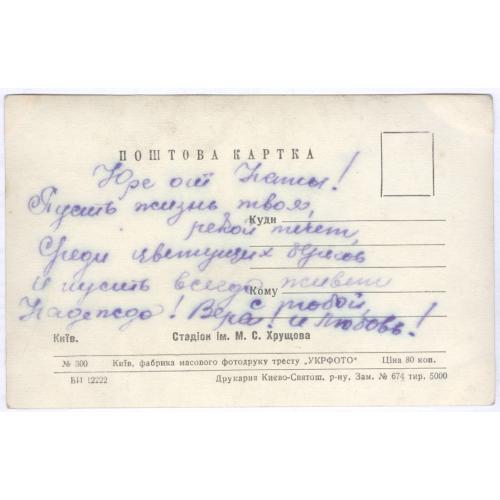 ПОШТОВА КАРТКА
Юре от Наты!
Пусть жизнь твоя,
рекой течет,
Куди
Среди цветущих берегов
И пусть всегда живет
Кому
с тобой,
Надежда! Вера! и любовь!
Київ. Стадіон ім. М. С. Хрущова
№ 300 Київ, фабрика масового фотодруку тресту „УКРФОТО“ Ціна 80 коп.
БИ 12222 Друкарня Києво-Святош. р-ну, Зам. № 674 тир. 5000